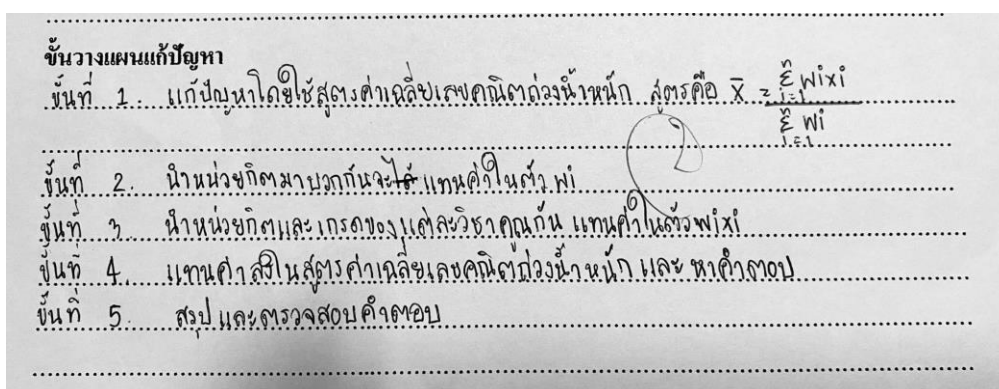 ขั้นวางแผนแก้ปัญหา
ขั้นที่ 1. แก้ปัญหาโดยใช้สูตรค่าเฉลี่ยเลขคณิตถ่วงน้ำหนัก สูตรคือ x̄ = Σⁿᵢ₌₁ wixi / Σⁿᵢ₌₁ wi
2
ขั้นที่ 2. นำหน่วยกิตมาบวกกันจะได้ แทนค่าในตัว wi
ขั้นที่ 3. นำหน่วยกิตและเกรดของแต่ละวิชาคูณกัน แทนค่าในตัวwixi
ขั้นที่ 4. แทนค่า ลงในสูตรค่าเฉลี่ยเลขคณิตถ่วงน้ำหนัก และ หาคำตอบ
ขั้นที่ 5. สรุป และตรวจสอบคำตอบ